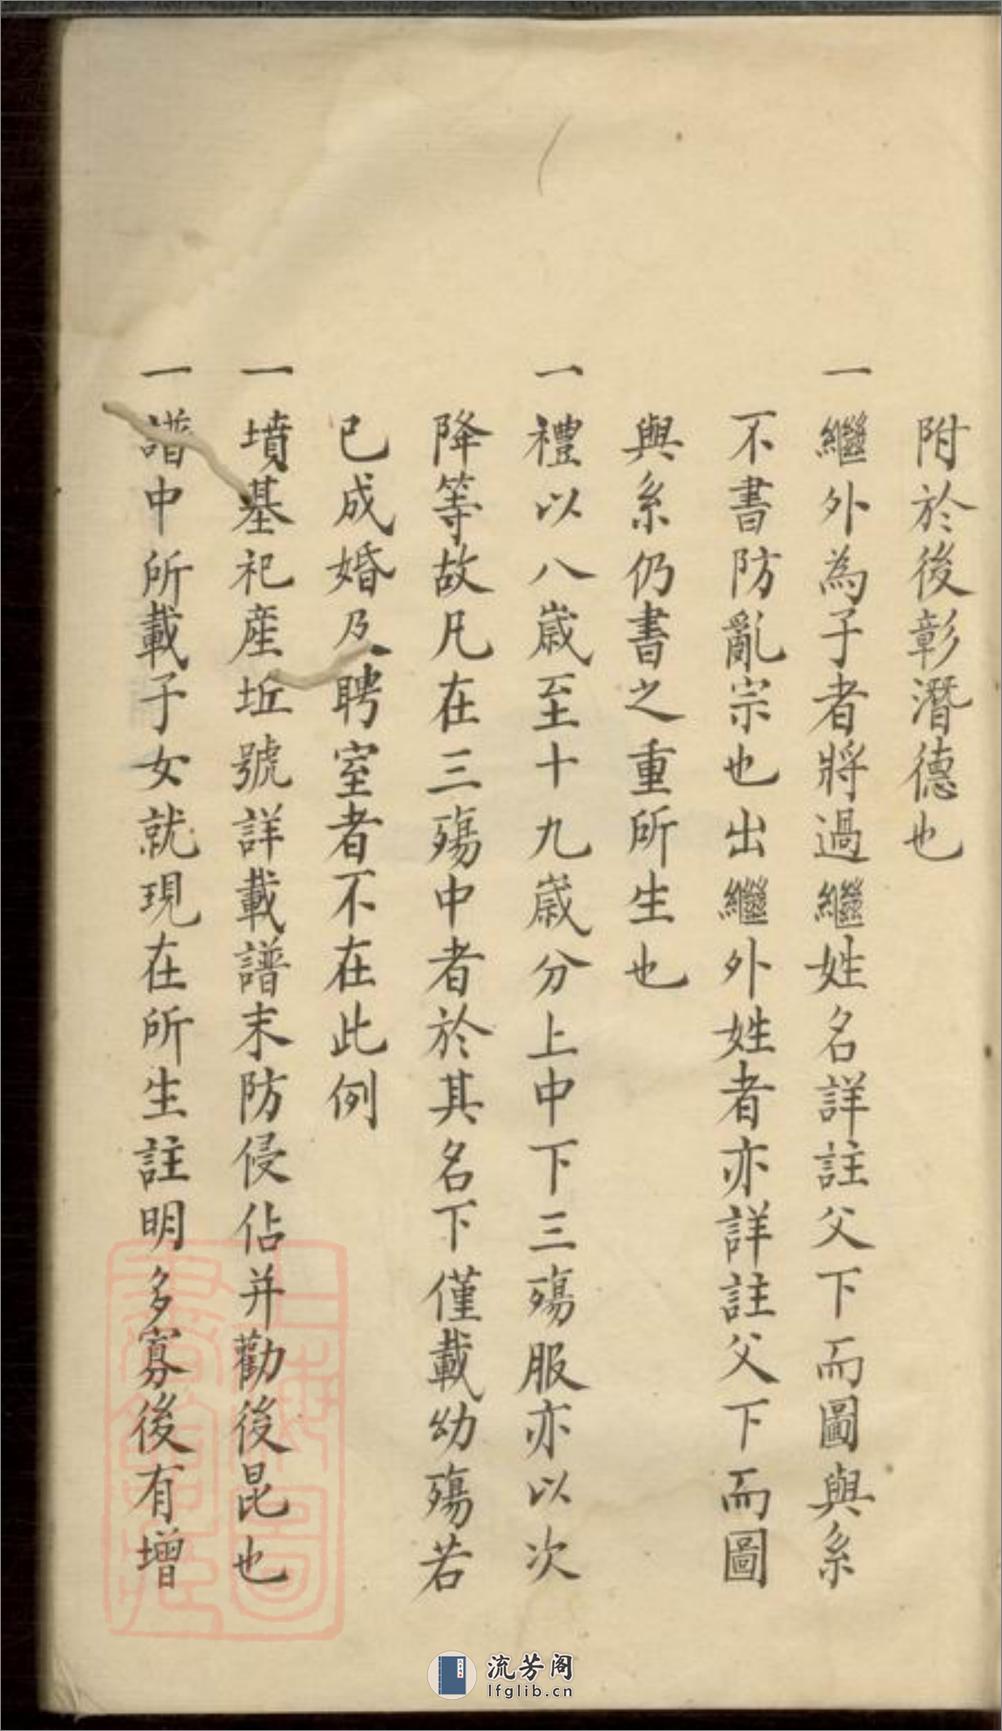 附於後彰潛德也
一繼外為子者將過繼姓名詳註父下而圖與系
不書防亂宗也出繼外姓者亦詳註父下而圖
與系仍書之重所生也
一禮以八歲至十九歲分上中下三殤服亦以次
降等故凡在三殤中者於其名下僅載幼殤若
已成婚及聘室者不在此例
一墳基祀產坵號詳載譜末防侵佔并勸後昆也
一譜中所載子女就現在所生註明多寡後有增
上海圖書館藏
流芳阁
lfglib.cn